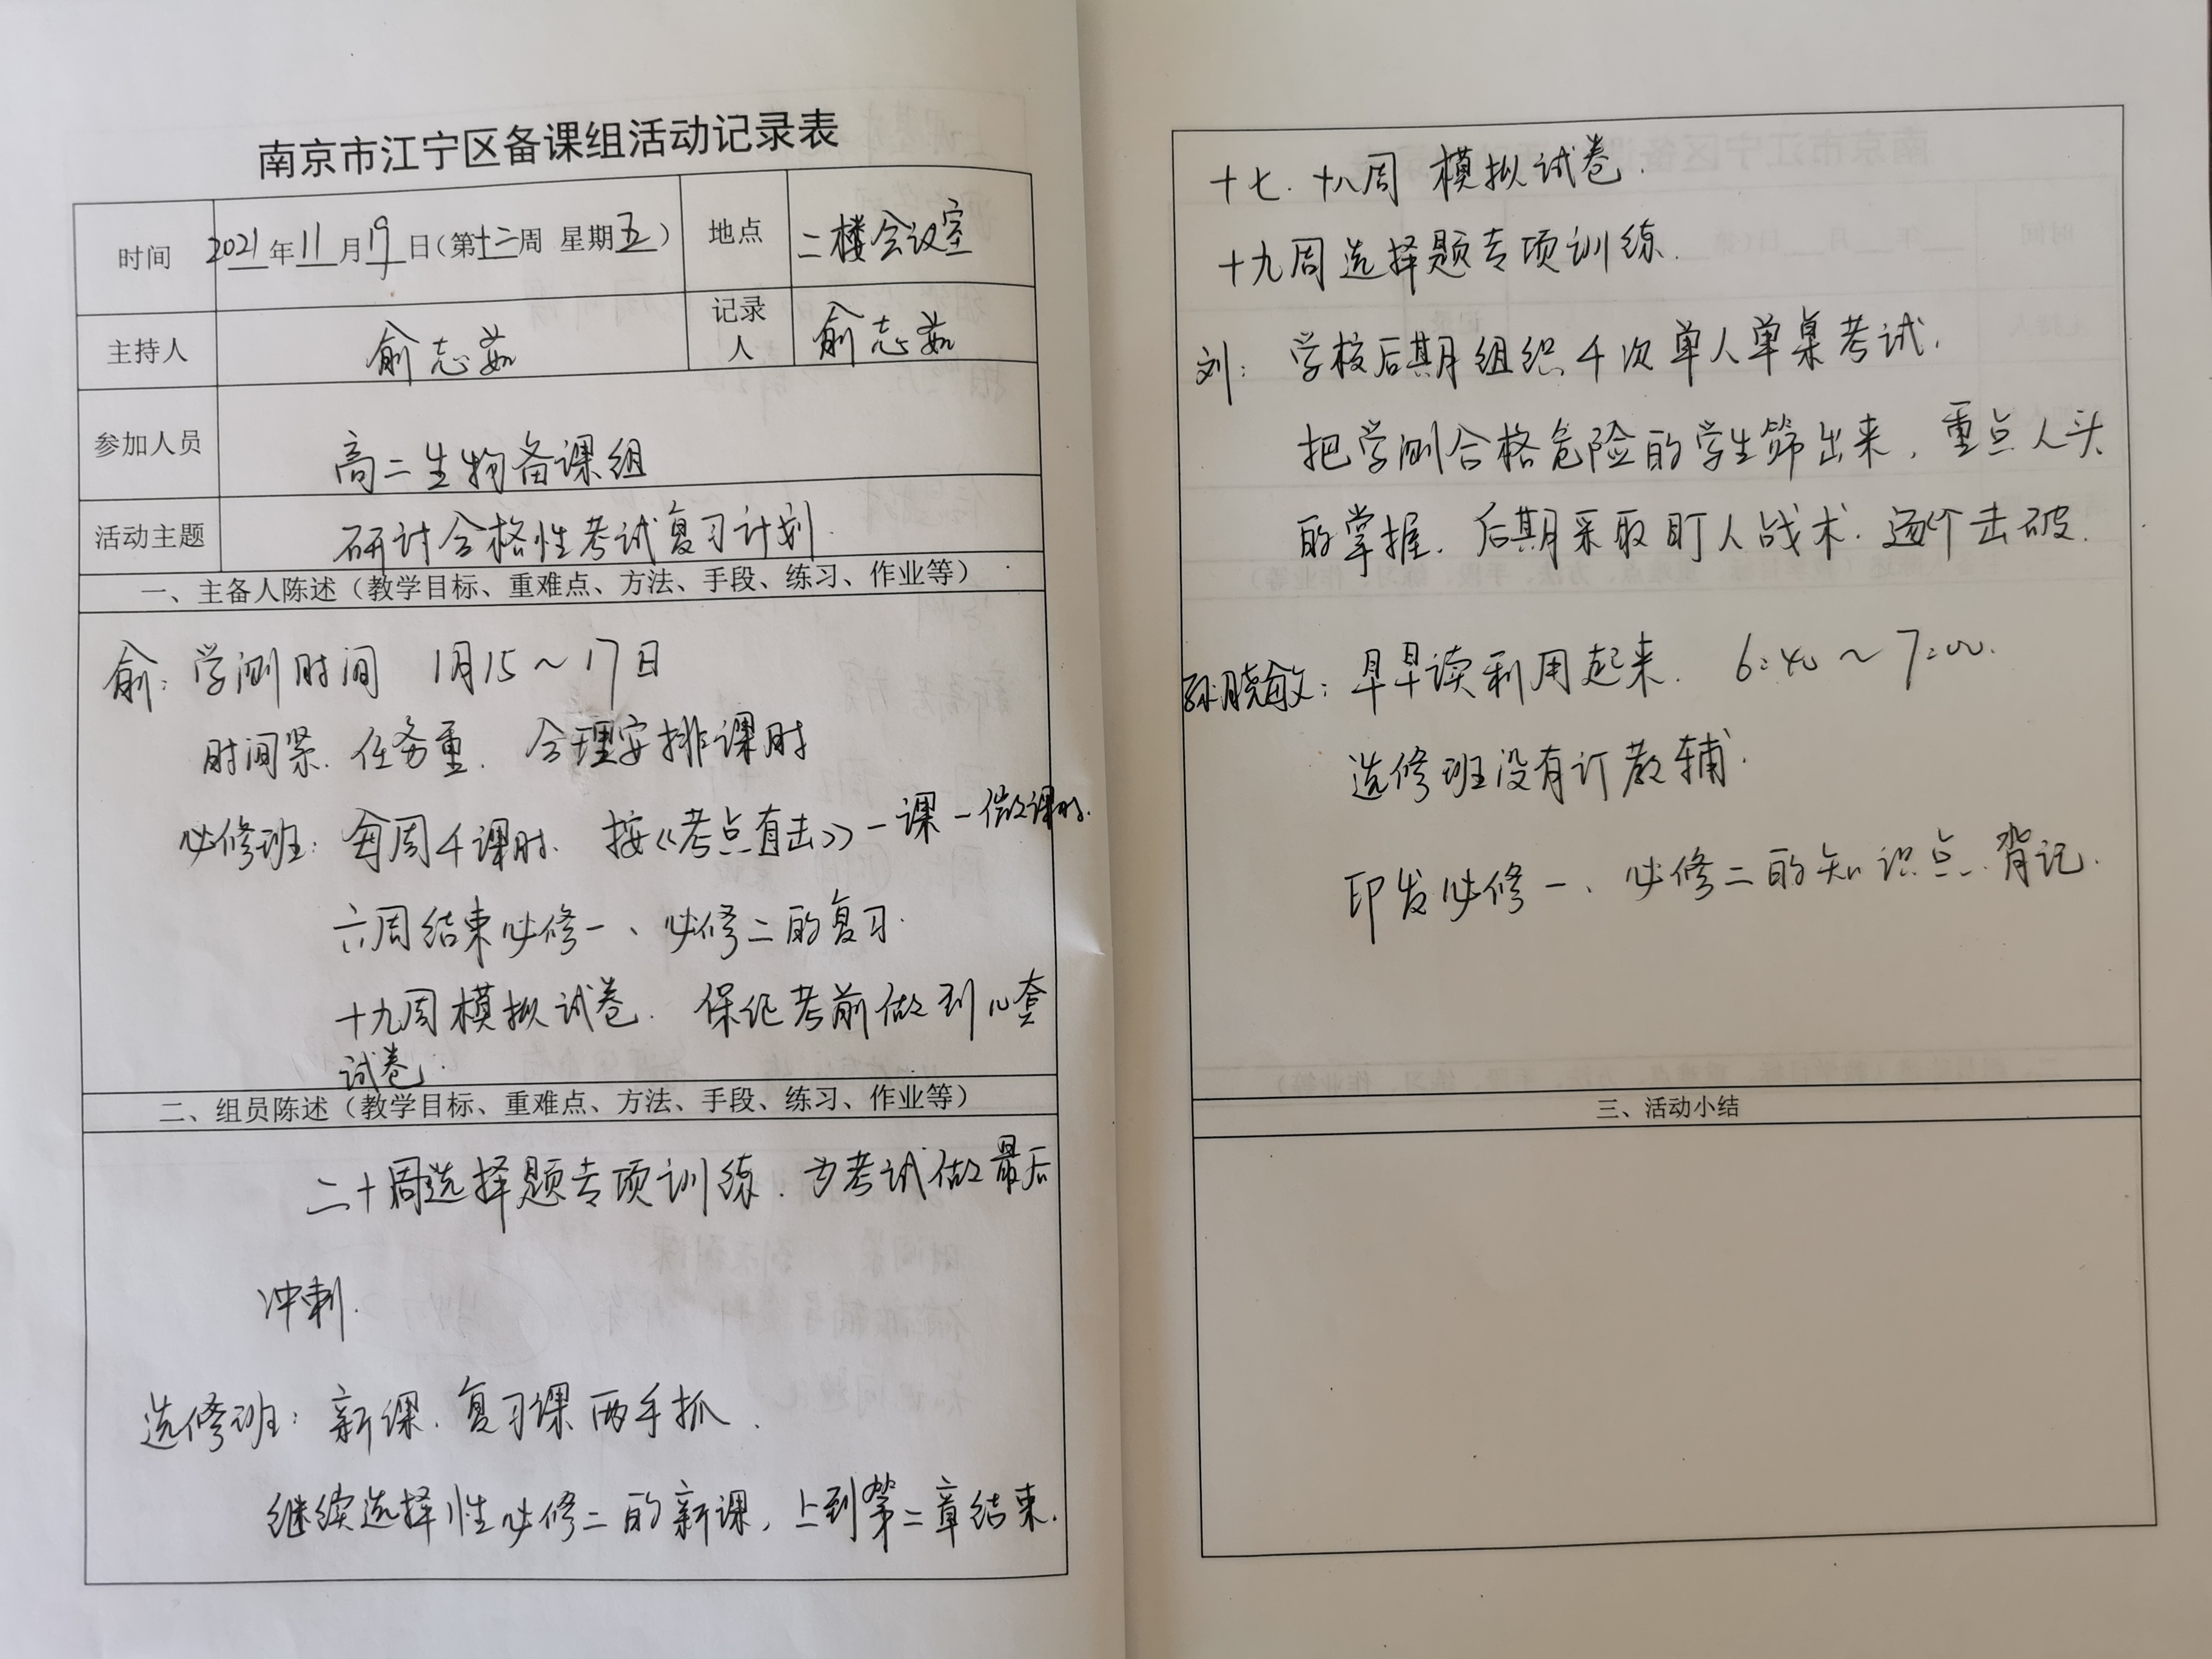 南京市江宁区备课组活动记录表
时间 2021年11月19日(第十二周 星期五) 地点 二楼会议室
主持人 俞志茹 记录人 俞志茹
参加人员 高二生物备课组
活动主题 研讨合格性考试复习计划.
一、主备人陈述（教学目标、重难点、方法、手段、练习、作业等）
俞: 学测时间 1月15~17日
时间紧. 任务重. 合理安排课时
必修班: 每周4课时. 按《考点直击》一课一做课时.
六周结束必修一、必修二的复习.
十九周模拟试卷. 保证考前做到八套
试卷.
二、组员陈述（教学目标、重难点、方法、手段、练习、作业等）
二十周选择题专项训练. 为考试做最后
冲刺.
选修班: 新课. 复习课两手抓.
继续选择性必修二的新课, 上到第二章结束.
十七. 十八周 模拟试卷.
十九周选择题专项训练.
刘: 学校后期组织4次单人单桌考试.
把学测合格危险的学生筛出来, 重点人头
的掌握. 后期采取盯人战术. 逐个击破.
孙晓敏: 早早读利用起来. 6:40~7:00.
选修班没有订教辅.
印发必修一、必修二的知识点. 背记.
三、活动小结